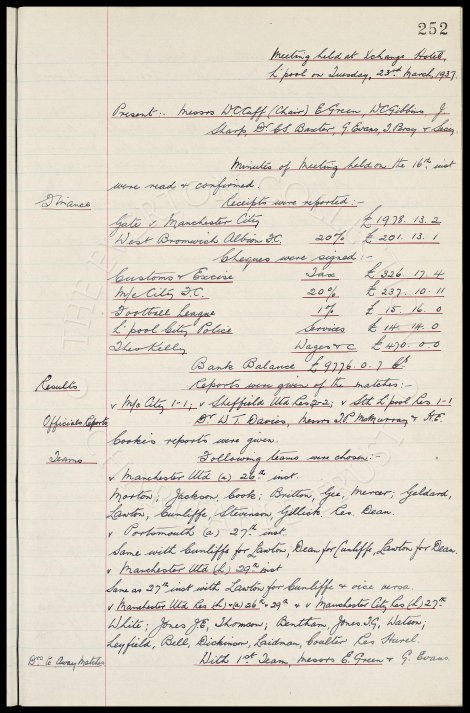 252
Meeting held at Xchange Hotel,
L'pool on Tuesday, 23rd March, 1937.
Present :- Messrs W.C. Cuff (Chair) E. Green, W.C. Gibbins, J.
Sharp, Dr. C.S. Baxter, G. Evans, T. Percy & Secy.
Minutes of Meeting held on the 16th inst
were read & confirmed.
Finance
Receipts were reported :-
Gate v Manchester City £1978. 13. 2
West Bromwich Albion F.C. 20% £ 201. 13. 1
Cheques were signed :-
Customs & Excise Tax £ 326. 17. 4
M/c City F.C. 20% £ 237. 10. 11
Football League 1% £ 15. 16. 0
L'pool City Police Services £ 14. 14. 0
Theo Kelly Wages &c £ 470. 0. 0
Bank Balance £9776. 0. 7 Cr.
Results
Reports were given of the matches :-
v M/c City 1-1; v Sheffield Utd Res 2-2; v Sth L'pool Res 1-1
Officials Reports
Dr W.T. Davies, Messrs T.P. McMurray & H.E.
Cookes reports were given.
Teams
Following teams were chosen :-
v Manchester Utd (a) 26th inst.
Morton; Jackson, Cook; Britton, Gee, Mercer; Geldard,
Lawton, Cunliffe, Stevenson, Gillick Res. Dean.
v Portsmouth (a) 27th inst.
Same with Cunliffe for Lawton, Dean for Cunliffe, Lawton for Dean.
v Manchester Utd (h) 29th inst
Same as 27th inst with Lawton for Cunliffe & vice versa.
v Manchester Utd Res (h) & (a) 26th & 29th & v Manchester City Res (h) 27th
White; Jones J.E., Thomson; Bentham, Jones T.G., Watson;
Leyfield, Bell, Dickinson, Laidman, Coulter Res Hurel.
Drs to Away Matches
With 1st Team, Messrs E. Green & G. Evans.